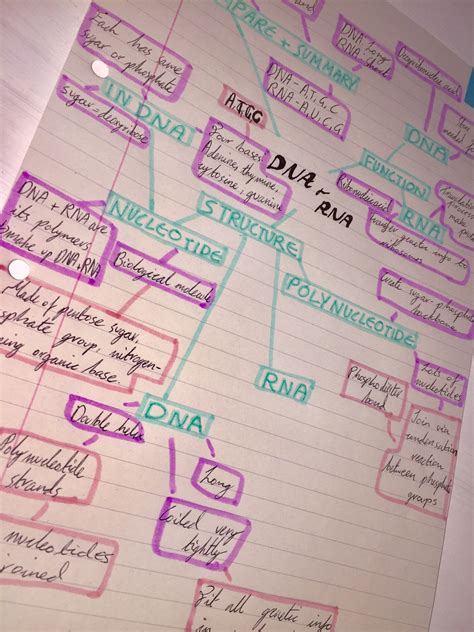 Each has same
sugar or phosphate
COMPARE + SUMMARY
DNA
RNA
DNA - A,T,G,C
RNA - A,U,C,G
IN DNA
sugar = deoxyribose
A,T,C,G
Four bases
Adenine, thymine,
cytosine, guanine
DNA +
RNA
DNA
FUNCTION
RNA
Ribonucleic acid
transfer genetic info to
ribosomes
DNA + RNA are
its polymers
make up DNA, RNA
NUCLEOTIDE
STRUCTURE
Biological molecule
POLYNUCLEOTIDE
Create sugar-phosphate
backbone
Made of pentose sugar,
phosphate group, nitrogen-
organic base.
RNA
Phosphodiester
bond
Lots of
nucleotides
Join via
condensation
reaction
between phosphate
groups
DNA
Double helix
Long
Polynucleotide
strands
Coiled very
tightly
nucleotides
joined
Fit all genetic info